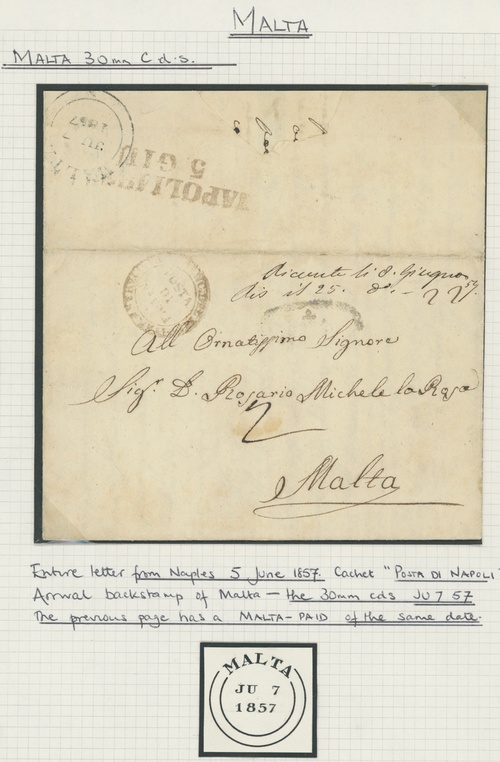 MALTA
MALTA 30mm C.d.s.
1857
JU 7
MALTA
NAPOLI
5 GIU
POSTA
DI
ricevuta li 8. Giugno
dis il 25. do. - 22 57.
All Ornatissimo Signore
Sigr. D. Rosario Michele la Rosa
2
Malta
Entire letter from Naples 5 June 1857. Cachet "POSTA DI NAPOLI"
Arrival backstamp of Malta - the 30mm cds JU 7 57
The previous page has a MALTA-PAID of the same date.
MALTA
JU 7
1857